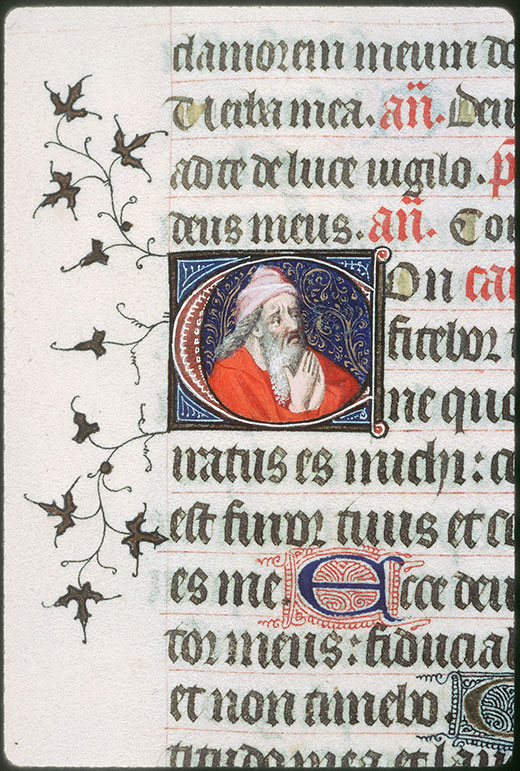 clamorem meum do
Verba mea. añ. Deu
ad te de luce vigilo. p̄
deus meus. añ. Con
COn can
fitebor t
ne quo
iratus es michi: c
est furor tuus et co
es me. Ecce deu
tor meus: fiducial
et non timebo.
titudo mea et lau